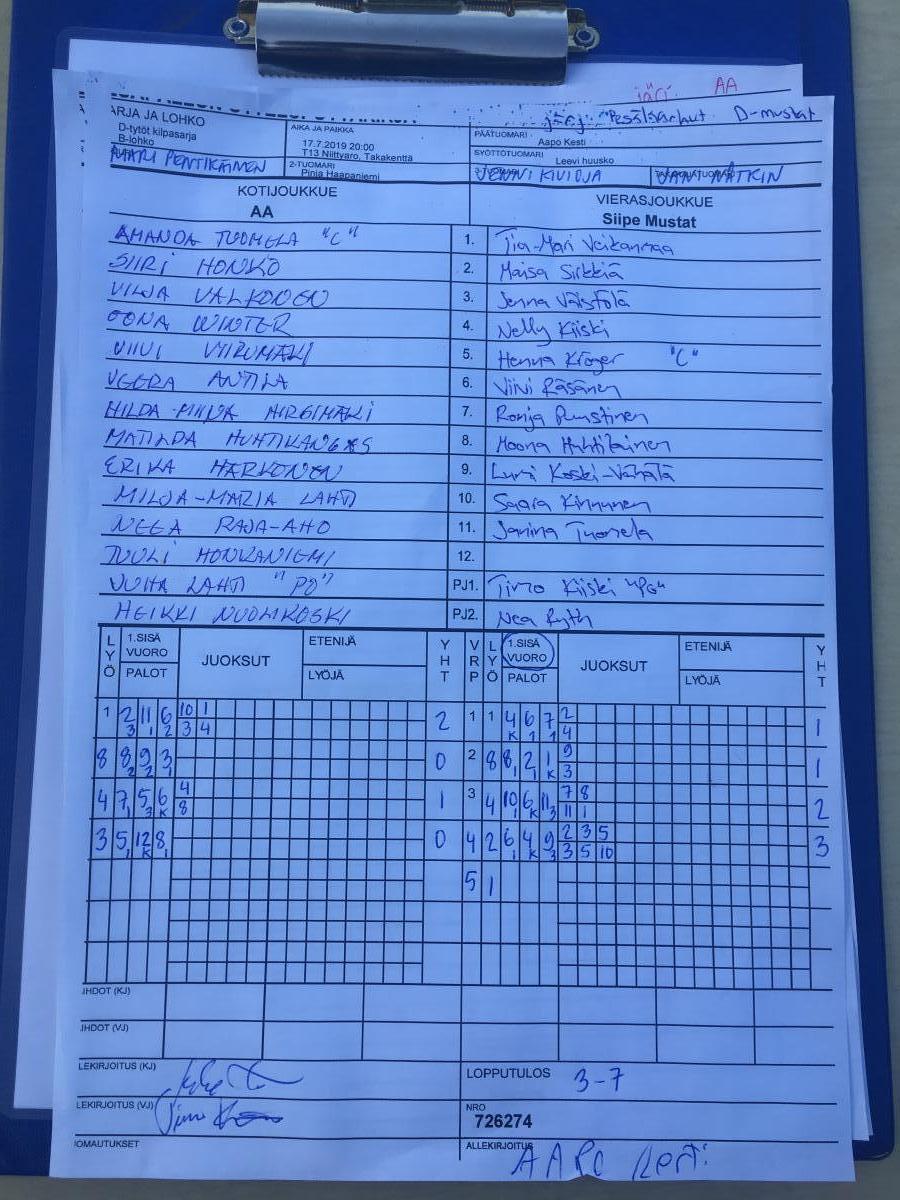 järj. AA
järj. Pesälserlaut D-mustat
ARJA JA LOHKO
D-tytöt kilpasarja
B-lohko
MARI PENTIKÄINEN
AIKA JA PAIKKA
17.7.2019 20:00
T13 Niittyaro, Takakenttä
2-TUOMARI
Pinja Haapaniemi
PÄÄTUOMARI
Aapo Kesti
SYÖTTÖTUOMARI
Leevi huusko
JENNI KIVIOJA
JANI NÄTKIN
KOTIJOUKKUE
AA
VIERASJOUKKUE
Siipe Mustat
AMANDA TUOMELA "C" 1. Tia-Mari Veikanmaa
SIIRI HONKO 2. Maisa Sirkkiä
VILJA VALKONEN 3. Jenna Väistölä
OONA WINTER 4. Nelly Kiiski
VIIVI VIIRUMÄKI 5. Henna Kröger "C"
VEERA ANTILA 6. Viivi Räsänen
HILDA-MIINA HIRSIMÄKI 7. Ronja Puustinen
MATILDA HUHTIKANGAS 8. Noona Huhtilainen
ERIKA HÄRKÖNEN 9. Lumi Koski-Vähälä
MILJA-MARIA LAHTI 10. Saara Kinnunen
NEEA RAJA-AHO 11. Janina Tuomela
TUULI HONKANIEMI 12.
JUHA LAHTI "PÖ" PJ1. Timo Kiiski "PG"
HEIKKI NUOLIKOSKI PJ2. Nea Ryth
LYÖ 1.SISÄ VUORO PALOT JUOKSUT ETENIJÄ LYÖJÄ YHT VRP LYÖ 1.SISÄ VUORO PALOT JUOKSUT ETENIJÄ LYÖJÄ YHT
1 2 11 6 10 1 2 1 1 4 6 7 2 1
3 1 2 3 4 K 1 1 4
8 8 9 3 0 2 8 8 2 1 9 1
2 2 1 1 1 K 3
4 7 5 6 4 1 3 4 10 6 11 7 8 2
1 3 K 8 1 K 3 11 1
3 5 12 8 0 4 2 6 4 9 2 3 5 3
1 K 1 1 K 3 3 5 10
5 1
JHDOT (KJ)
JHDOT (VJ)
LEKIRJOITUS (KJ)
LOPPUTULOS 3-7
LEKIRJOITUS (VJ) Timo
NRO
726274
OMAUTUKSET
ALLEKIRJOITUS
AAPO Kesti